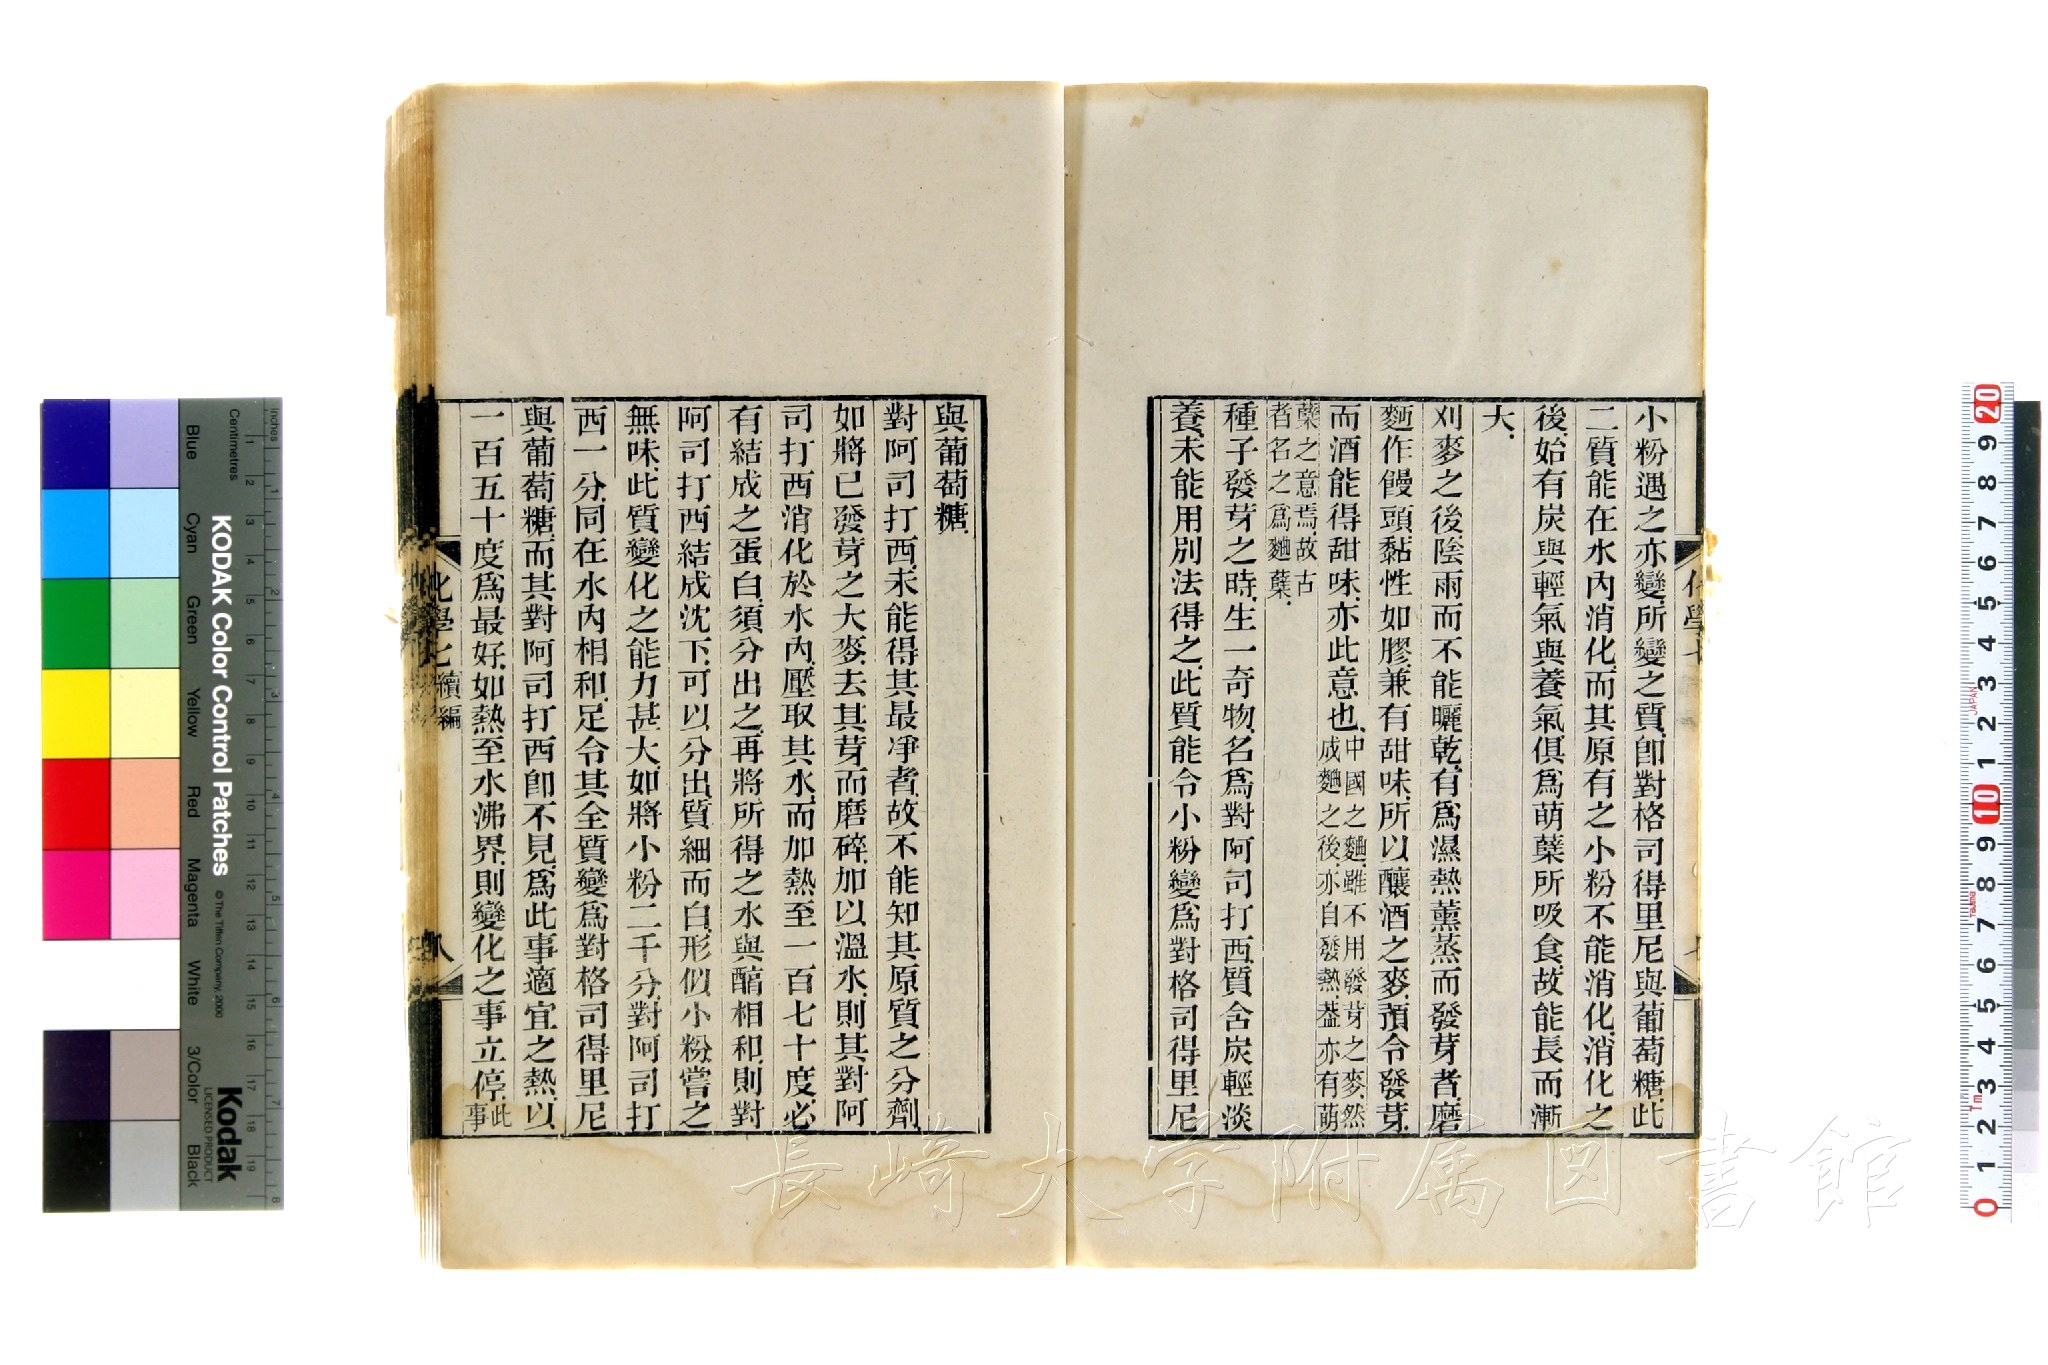 小粉遇之亦變所變之質卽對格司得里尼與葡萄糖此
二質能在水內消化而其原有之小粉不能消化消化之
後始有炭與輕氣與養氣俱爲萌蘖所吸食故能長而漸
大
刈麥之後陰雨而不能曬乾有爲濕熱薰蒸而發芽者磨
麪作饅頭黏性如膠兼有甜味所以釀酒之麥預令發芽
而酒能得甜味亦此意也中國之麯雖不用發芽之麥然
成麯之後亦自發熱葢亦有萌
蘖之意焉故古
者名之爲麯蘖
種子發芽之時生一奇物名爲對阿司打西質含炭輕淡
養未能用別法得之此質能令小粉變爲對格司得里尼
與葡萄糖
對阿司打西未能得其最凈者故不能知其原質之分劑
如將已發芽之大麥去其芽而磨碎加以溫水則其對阿
司打西消化於水內壓取其水而加熱至一百七十度必
有結成之蛋白須分出之再將所得之水與醕相和則對
阿司打西結成沈下可以分出質細而白形似小粉嘗之
無味此質變化之能力甚大如將小粉二千分對阿司打
西一分同在水內相和足令其全質變爲對格司得里尼
與葡萄糖而其對阿司打西卽不見爲此事適宜之熱以
一百五十度爲最好如熱至水沸界則變化之事立停此
事
化學七續編
八
長崎大学附属図書館
KODAK Color Control Patches
© The Tiffen Company, 2000
Kodak
LICENSED PRODUCT
Inches
Centimetres
Blue
Cyan
Green
Yellow
Red
Magenta
White
3/Color
Black
JAPAN